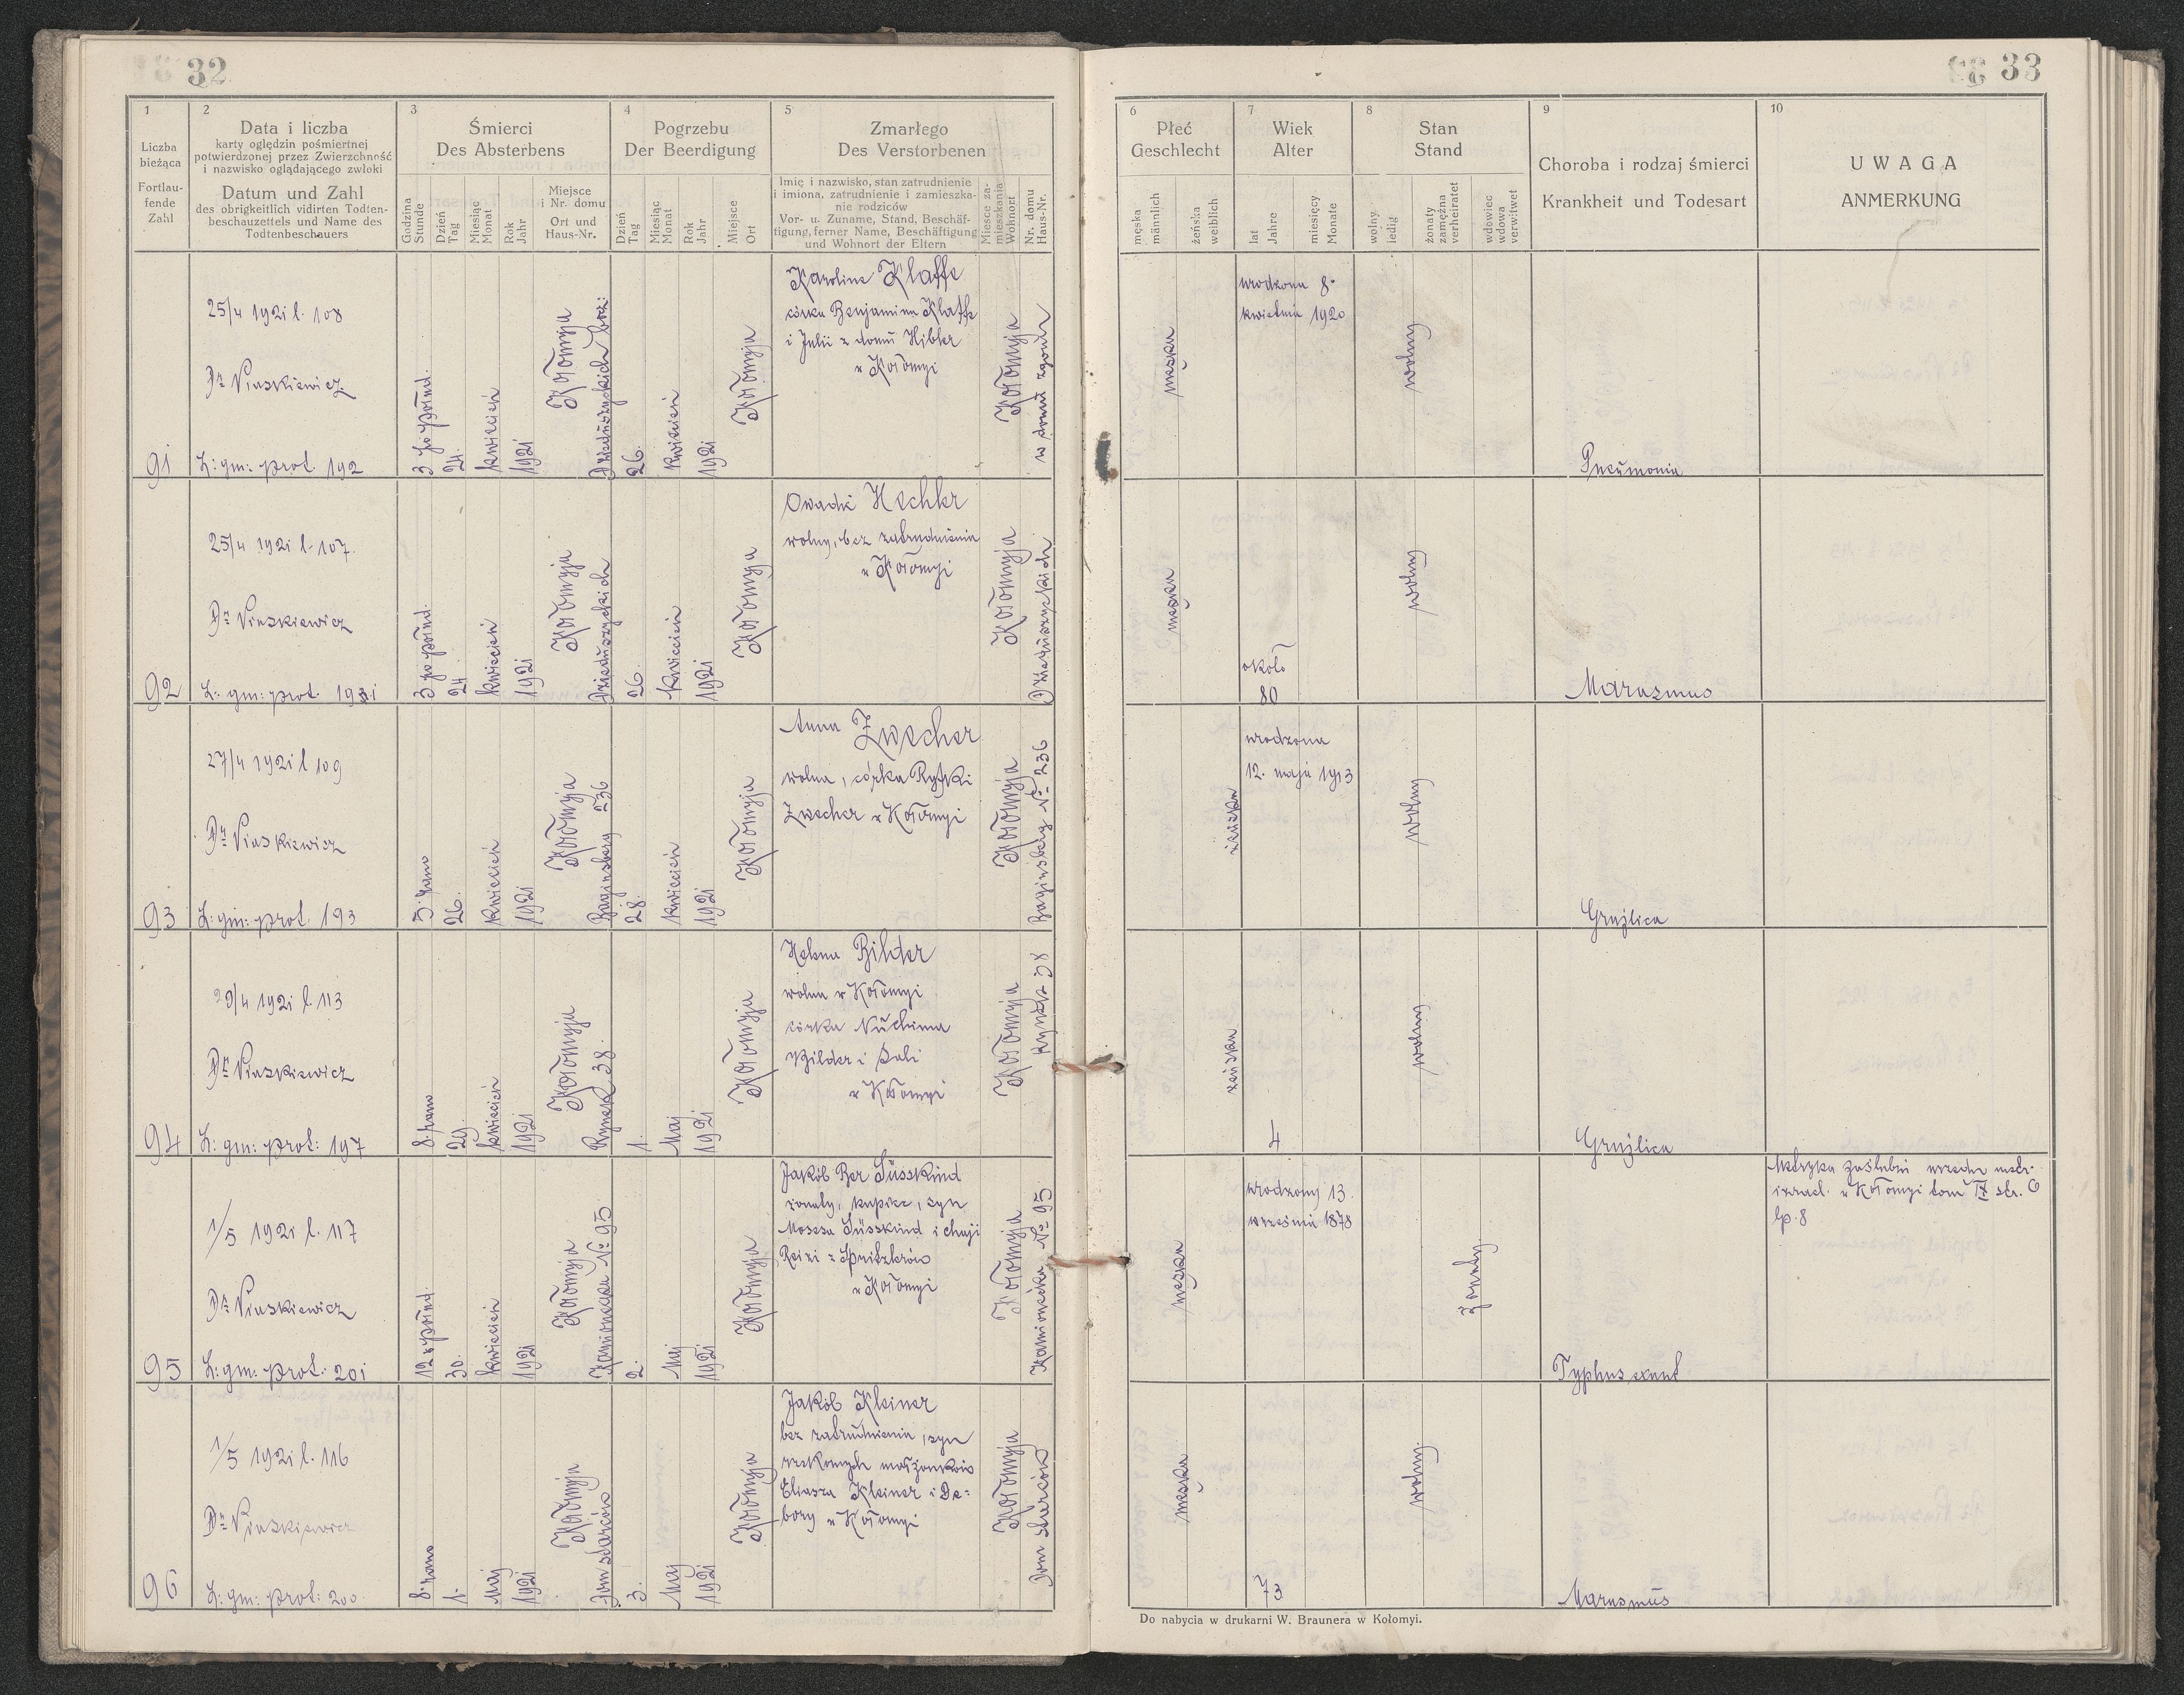 32
1
Liczba
bieżąca
Fortlau-
fende
Zahl
2
Data i liczba
karty oględzin pośmiertnej
potwierdzonej przez Zwierzchność
i nazwisko oglądającego zwłoki
Datum und Zahl
des obrigkeitlich vidirten Todten-
beschauzettels und Name des
Todtenbeschauers
3
Śmierci
Des Absterbens
Godzina
Stunde
Dzień
Tag
Miesiąc
Monat
Rok
Jahr
Miejsce
i Nr. domu
Ort und
Haus-Nr.
4
Pogrzebu
Der Beerdigung
Dzień
Tag
Miesiąc
Monat
Rok
Jahr
Miejsce
Ort
5
Zmarłego
Des Verstorbenen
Imię i nazwisko, stan zatrudnienie
i imiona, zatrudnienie i zamieszka-
nie rodziców
Vor- u. Zuname, Stand, Beschäf-
tigung, ferner Name, Beschäftigung
und Wohnort der Eltern
Miesce za-
mieszkania
Wohnort
Nr. domu
Haus-Nr.
91
25/4 1921 l. 108
Dr Piaskiewicz
L: gm: prot. 192
3 po połud.
24.
kwiecień
1921
Kołomyja
26.
kwiecień
1921
Kołomyja
Karolina Klaffe
córka Benjamina Klaffe
i Julii z domu Hibler
w Kołomyi
Kołomyja
92
25/4 1921 l. 107.
Dr Piaskiewicz
L: gm: prot. 191
3 po połud.
24.
kwiecień
1921
Kołomyja
Dzieduszyckich
26.
kwiecień
1921
Kołomyja
Owadie Hechler
wolny, bez zatrudnienia
w Kołomyi
Kołomyja
Dzieduszyckich
93
27/4 1921 l 109
Dr Piaskiewicz
L: gm: prot. 193
5. rano
26.
kwiecień
1921
Kołomyja
Baginsberg 236
28.
kwiecień
1921
Kołomyja
Anna Zwecher
wolna, córka Ryfki
Zwecher w Kołomyi
Kołomyja
Baginsberg No 236
94
29/4 1921 l. 113
Dr Piaskiewicz
L: gm: prot: 197
8. rano
29.
kwiecień
1921
Kołomyja
Rynek 38.
1.
Maj
1921
Kołomyja
Helena Bilder
wolna w Kołomyi
córka Nuchima
Bilder i Sali
w Kołomyi
Kołomyja
Rynek 38
95
1/5 1921 l. 117
Dr Piaskiewicz
L: gm: prot: 201
12 w połud.
30.
kwiecień
1921
Kołomyja
Kamionecka No 95
2.
Maj
1921
Kołomyja
Jakób Ber Süsskind
żonaty, kupiec, syn
Mosesa Süsskind i Chaji
Reizi z Spritzlerów
w Kołomyi
Kołomyja
Kamionecka No 95
96
1/5 1921 l. 116
Dr Piaskiewicz
L: gm: prot: 200.
8. rano
1.
Maj
1921
Kołomyja
Dom starców
3.
Maj
1921
Kołomyja
Jakób Kleiner
bez zatrudnienia, syn
rzekomych małżonków
Eliasza Kleiner i De-
bory w Kołomyi
Kołomyja
Dom starców
33
6
Płeć
Geschlecht
męska
männlich
żeńska
weiblich
7
Wiek
Alter
lat
Jahre
miesięcy
Monate
8
Stan
Stand
wolny
ledig
żonaty
zamężna
verheiratet
wdowiec
wdowa
verwitwet
9
Choroba i rodzaj śmierci
Krankheit und Todesart
10
UWAGA
ANMERKUNG
męska
urodzona 8.
kwietnia 1920
wolny
Pneumonia
męska
około
80
wolny
Marasmus
żeńska
urodzona
12. maja 1913
wolny
Gruźlica
żeńska
4
wolny
Gruźlica
męska
urodzony 13.
września 1878
żonaty
Typhus exant
Metryka zaślubin urzędu metr.
izrael. w Kołomyi tom IX str. 6
lp. 8
męska
73
wolny.
Marasmus
Do nabycia w drukarni W. Braunera w Kołomyi.